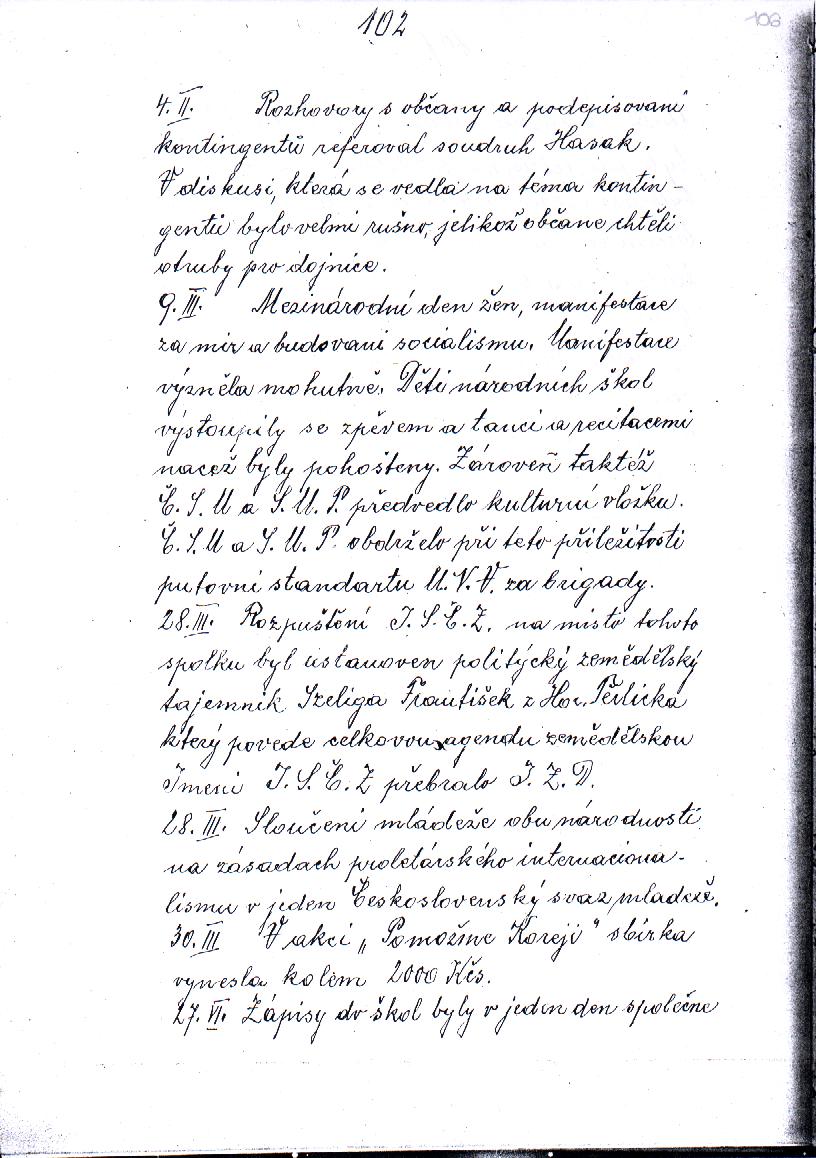 102
108
4. II. Rozhovory s občany a podepisovaní
kontingentů referoval soudruh Hasak.
V diskusi, která se vedla na téma kontin-
gentů bylo velmi rušno, jelikož občane chtěli
otruby pro dojnice.
9. III. Mezinárodní den žen, manifestace
za mír a budovaní socialismu. Manifestace
význěla mohutně. Děti národních škol
výstoupily se zpěvem a tanci a recitacemi
nacež byly pohoštěny. Zároveň taktéž
Č. S. M a S. M. P. předvedlo kulturní vložku.
Č. S. M a S. M. P. obdrželo při teto příležitosti
putovni standartu M. N. V. za brigady.
28. III. Rozpuštění J. S. Č. Z. na místo tohoto
spolku byl ustanoven politycký zemědělský
tajemník Szeliga František z Hor. Těrlicka
který povede celkovou agendu zemědělskou
Jmení J. S. Č. Z přebralo J. Z. D.
28. III. Sloučení mládeže obu národností
na zásadach proletářského internaciona-
lismu v jeden Československý svaz mladeže.
30. III V akci „Pomožme Koreji" sbírka
vynesla kolem 2000 Kčs.
27. VI. Zápisy do škol byly v jeden den společne